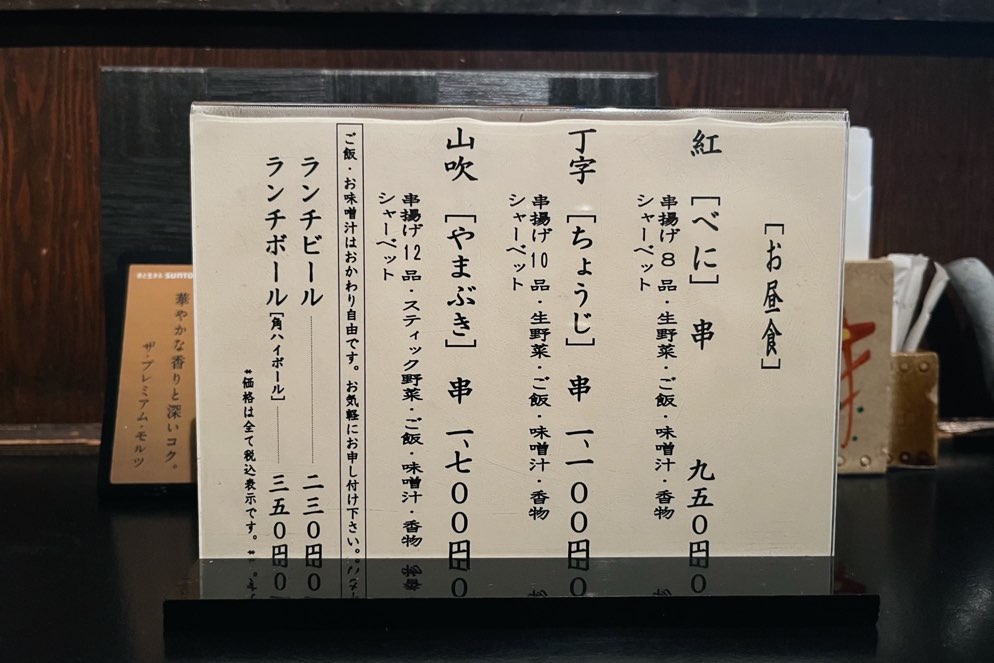 ［お昼食］
紅［べに］串 九五０円
串揚げ８品・生野菜・ご飯・味噌汁・香物
シャーベット
丁字［ちょうじ］串 一、一００円
串揚げ10品・生野菜・ご飯・味噌汁・香物
シャーベット
山吹［やまぶき］串 一、七００円
串揚げ12品・スティック野菜・ご飯・味噌汁・香物
シャーベット
ご飯・お味噌汁はおかわり自由です。お気軽にお申し付け下さい。
ランチビール 二三０円
ランチボール［角ハイボール］ 三五０円
*価格は全て税込表示です。*
水と生きる SUNTO
華やかな香りと深いコク。
ザ・プレミアム・モルツ